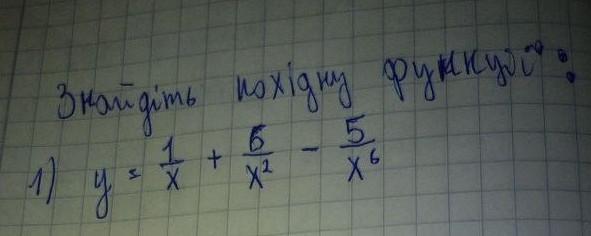 Знайдіть похідну функції:
1) y = 1/x + 6/x² - 5/x⁶